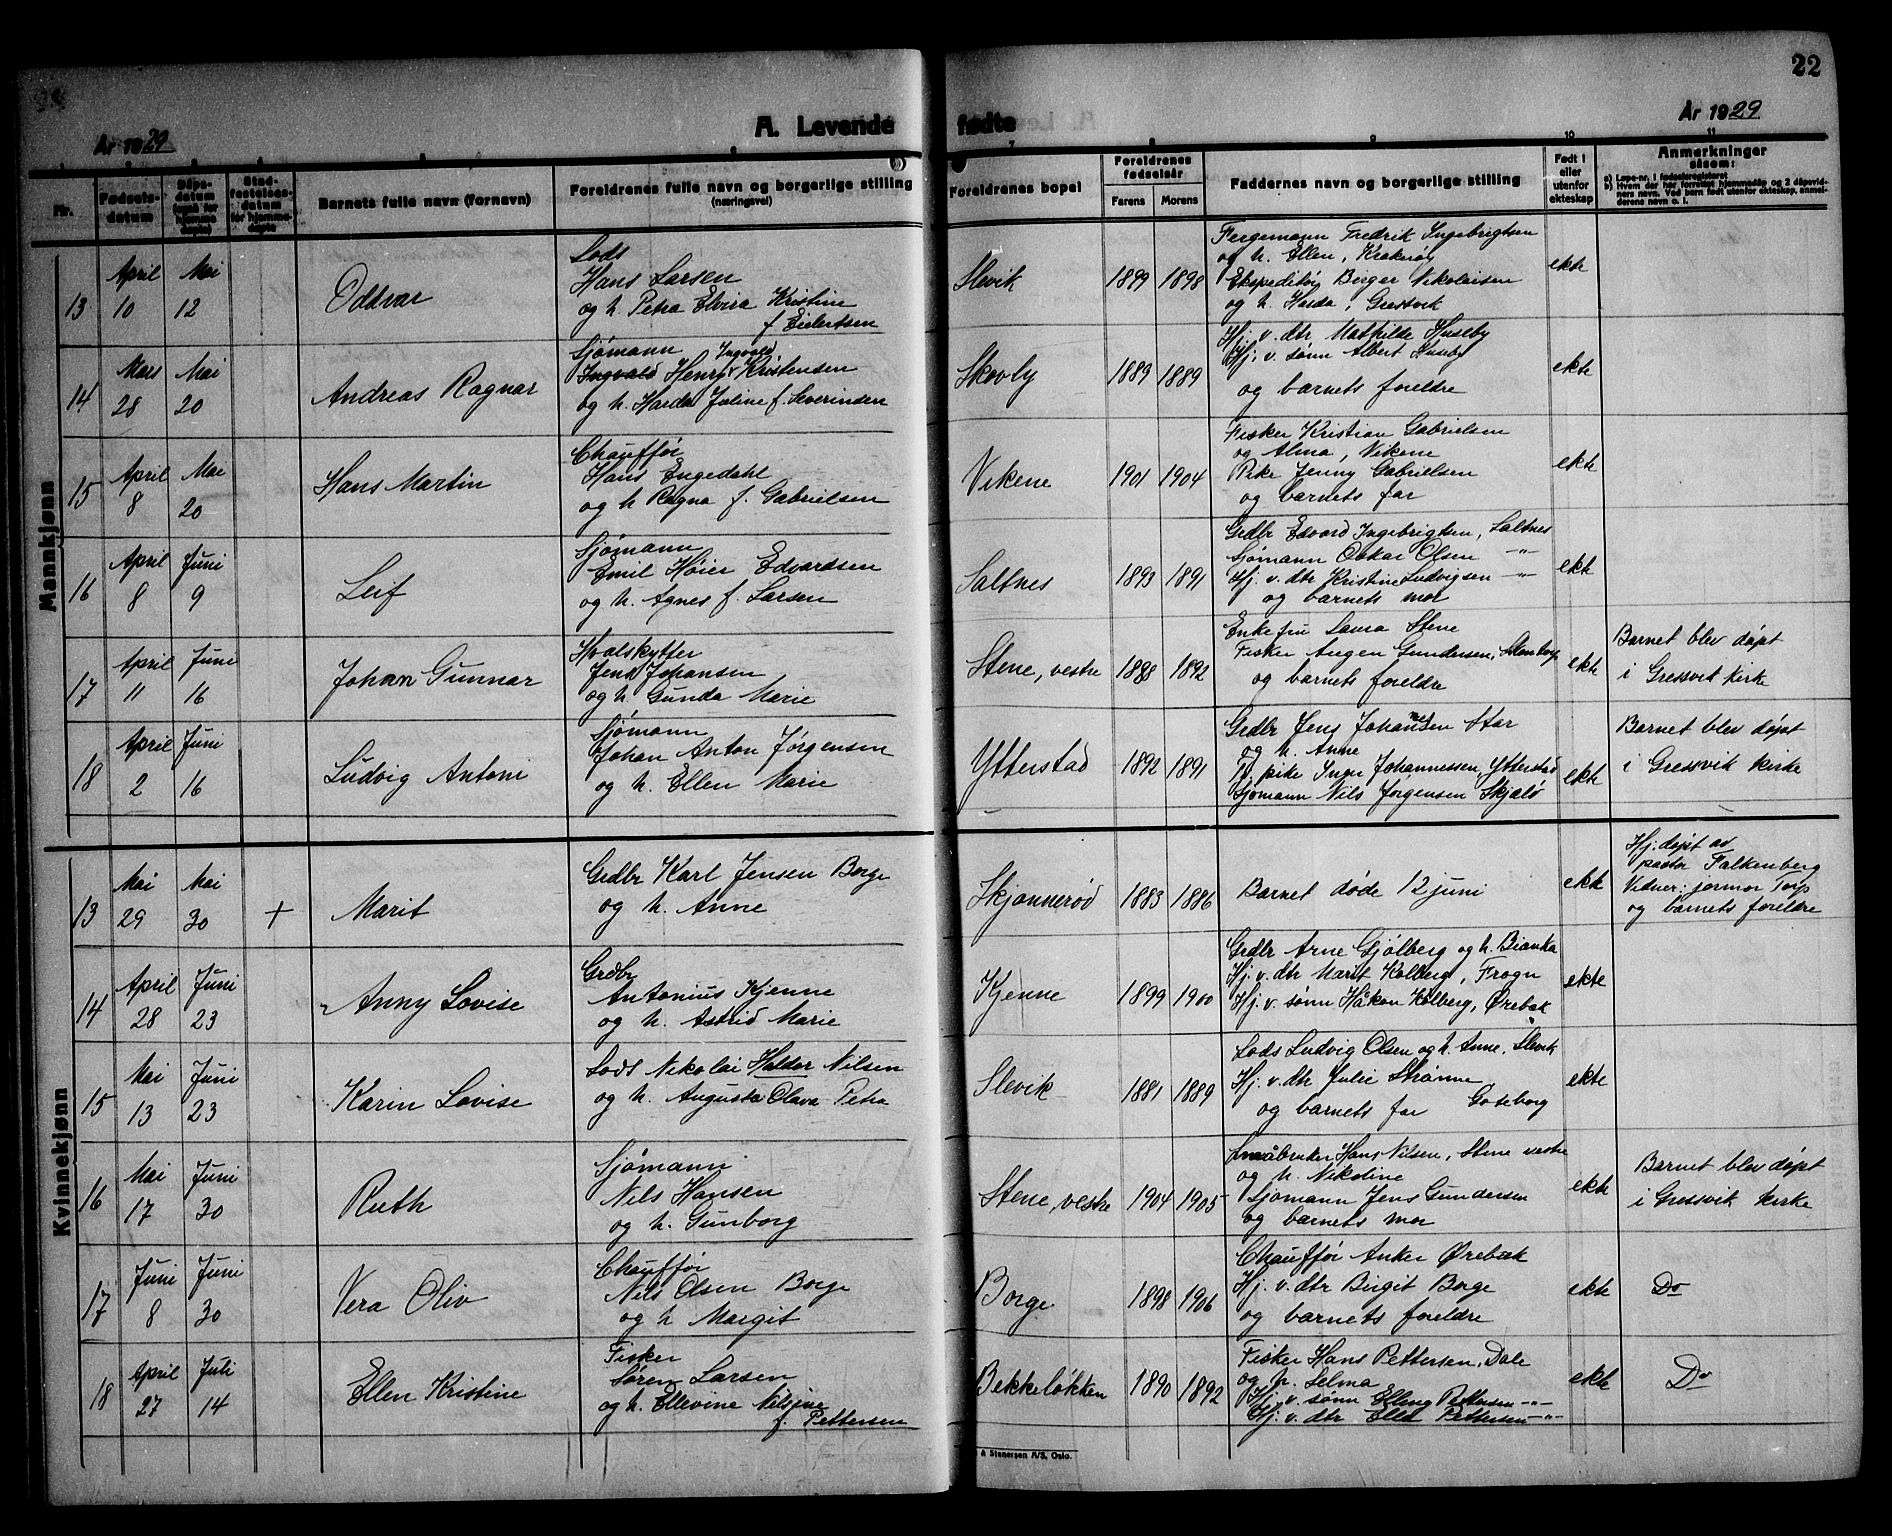 22
År 1929
A. Levende
fødte
År 1929
Nr.
Fødselsdatum
Dåpsdatum
Stadfestelsesdatum for hjemmedøpte
Barnets fulle navn (fornavn)
Foreldrenes fulle navn og borgerlige stilling
(næringsvei)
7
8
9
10
11
Foreldrenes bopel
Foreldrenes fødselsår
Farens
Morens
Faddernes navn og borgerlige stilling
Født i eller utenfor ekteskap
Anmerkninger
såsom:
a) Løpe-nr. i fødselsregisteret
b) Hvem der har forrettet hjemmedåp og 2 dåpsvidners navn. Ved barn født utenfor ekteskap, anmelderens navn o. l.
Mannkjønn
13
April 10
Mai 12
Oddvar
Lods
Hans Larsen
og h. Petra Elvira Kristine
f. Eilertsen
Slevik
1899
1898
Fergemann Fredrik Ingebrigtsen
og h. Ellen, Kråkerøy
Ekspeditør Borger Nikolaisen
og h. Harda, Gressvik
ekte
14
Mars 28
Mai 20
Andreas Ragnar
Sjømann
Ingvald Henry Ingvald Kristensen
og h. Harda Juline f. Severinsen
Skovly
1889
1889
Hj. v. dtr Mathilde Huseby
Hj. v. sønn Albert Huseby
og barnets foreldre
ekte
15
April 8
Mai 20
Hans Martin
Chauffør
Hans Engedahl
og h Ragna f. Gabrielsen
Vikene
1901
1904
Fisker Kristian Gabrielsen
og Alma, Vikene
Pike Jenny Gabrielsen
og barnets far
ekte
16
April 8
Juni 9
Leif
Sjømann
Emil Høier Edvardsen
og h. Agnes f. Larsen
Saltnes
1893
1891
Grdbr Edvard Ingebrigtsen, Saltnes
Sjømann Oskar Olsen -"-
Hj. v. dtr Kristine Ludvigsen -"-
og barnets mor
ekte
17
April 11
Juni 16
Johan Gunnar
Hvalskytter
Jens Johansen
og h Gunda Marie
Stene, vestre
1888
1892
Enkefru Laura Stene
Fisker Jørgen Gundersen,
og barnets foreldre
ekte
Barnet blev døpt
i Gressvik kirke
18
April 2
Juni 16
Ludvig Antoni
Sjømann
Johan Anton Jørgensen
og h. Ellen Marie
Ytterstad
1892
1891
Grdbr Jens Johannesen
og h. Anne
Tj. pike Inger Johannessen, Ytterstad
Sjømann Nils Jørgensen Skjælø
ekte
Barnet blev døpt
i Gressvik kirke
Kvinnekjønn
13
Mai 29
Mai 30
+
Marit
Grdbr Karl Jensen Borge
og h. Anne
Skjønnerød
1883
1886
Barnet døde 12 juni
ekte
Hj. døpt av
pastor Falkenberg
Vidner: jormor Torp
og barnets foreldre
14
April 28
Juni 23
Anny Lovise
Grdbr
Antonius Kjenne
og h. Astrid Marie
Kjenne
1899
1900
Grdbr Arne Gjølberg og h. Bianka
Hj. v. dtr Marit Kolberg, Frogn
Hj. v. sønn Håkon Kolberg, Ørebæk
ekte
15
Mai 13
Juni 23
Karin Lovise
Lods Nikolai Haldor Nilsen
og h. Augusta Olava Petra
Slevik
1881
1889
Lods Ludvig Olsen og h. Anne, Slevik
Hj. v. dtr Julie Strønne
og barnets far Gøteborg
ekte
16
Mai 17
Juni 30
Ruth
Sjømann
Nils Hansen
og h. Gunborg
Stene, vestre
1904
1905
Småbruker Hans Nilsen, Stene vestre
og h. Nikoline
Sjømann Jens Gundersen
og barnets mor
ekte
Barnet blev døpt
i Gressvik kirke
17
Juni 8
Juni 30
Vera Oliv
Chauffør
Nils Olsen Borge
og h Margit
Borge
1898
1906
Chauffør Anker Ørebæk
Hj. v. dtr Birgit Borge
og barnets foreldre
ekte
Do
18
April 27
Juli 14
Ellen Kristine
Fisker
Søren Larsen
og h. Ellevine Nilsine
f. Pettersen
Bekkeløkken
1890
1892
Fisker Hans Pettersen, Dale
og h. Selma
Hj. v. sønn Elling Pettersen -"-
Hj. v. dtr Elled Pettersen -"-
ekte
Do
& Stenersen A/S, Oslo.